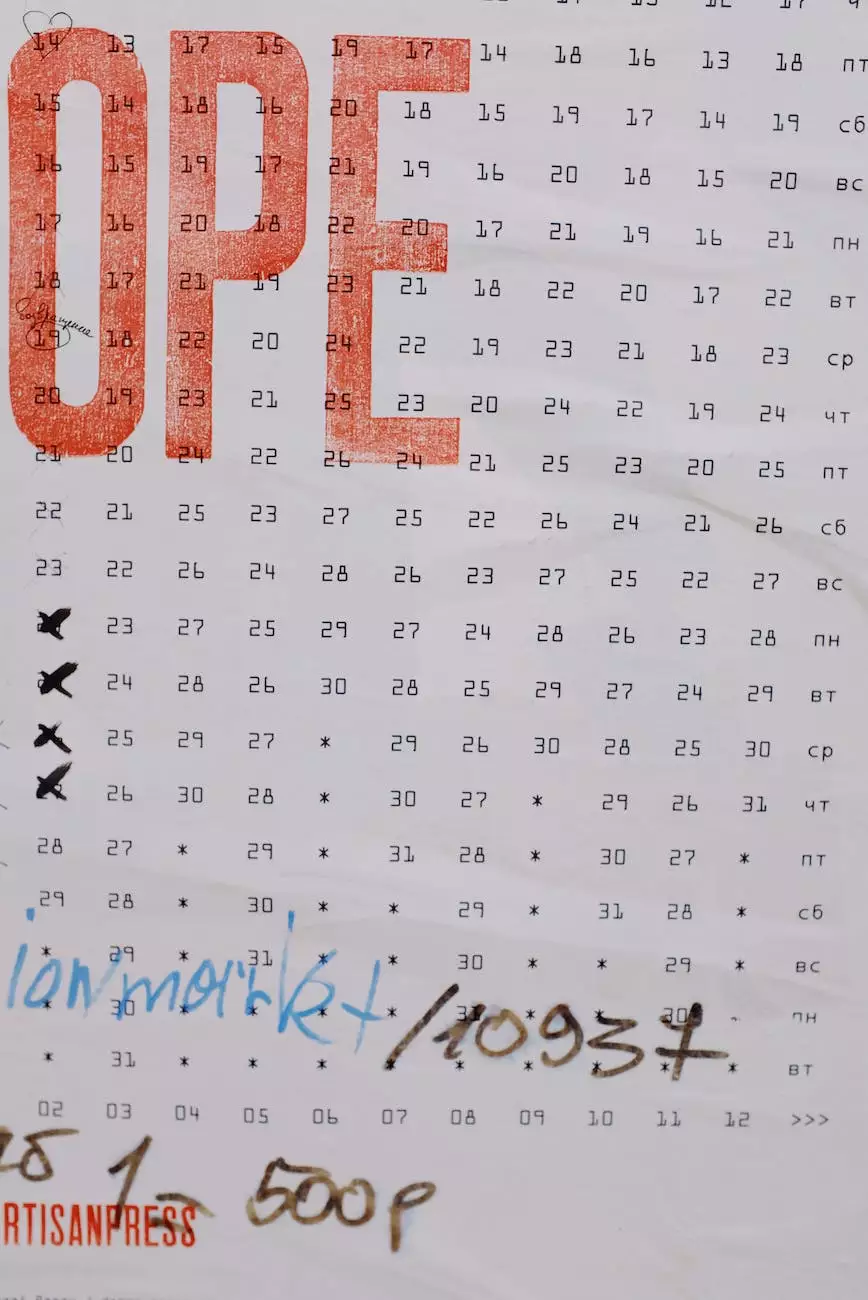 OPE
14 13 17 15 19 17 14 18 16 13 18 пт
15 14 18 16 20 18 15 19 17 14 19 сб
16 15 19 17 21 19 16 20 18 15 20 вс
17 16 20 18 22 20 17 21 19 16 21 пн
18 17 21 19 23 21 18 22 20 17 22 вт
возвращение
19 18 22 20 24 22 19 23 21 18 23 ср
20 19 23 21 25 23 20 24 22 19 24 чт
21 20 24 22 26 24 21 25 23 20 25 пт
22 21 25 23 27 25 22 26 24 21 26 сб
23 22 26 24 28 26 23 27 25 22 27 вс
23 27 25 29 27 24 28 26 23 28 пн
24 28 26 30 28 25 29 27 24 29 вт
25 29 27 * 29 26 30 28 25 30 ср
26 30 28 * 30 27 * 29 26 31 чт
28 27 * 29 * 31 28 * 30 27 * пт
29 28 * 30 * * 29 * 31 28 * сб
* 29 * 31 * * 30 * * 29 * вс
* 30 * * * * 31 * * 30 * пн
ionmarkt /10937
* 31 * * * * * * * * * вт
02 03 04 05 06 07 08 09 10 11 12 >>>
1 - 500р
RTISANPRESS